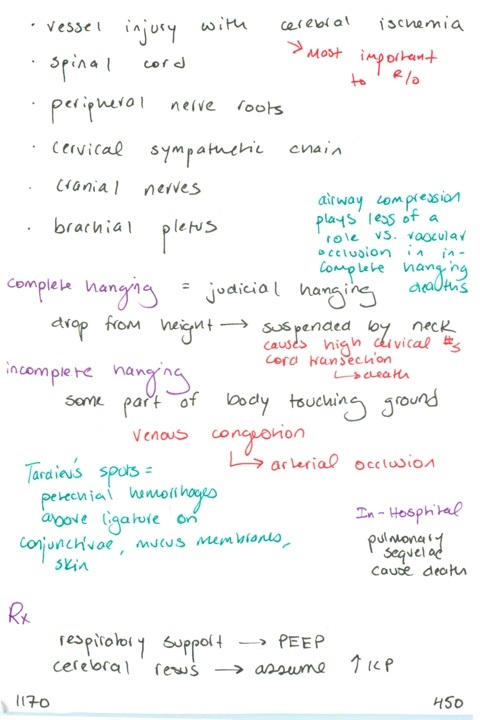 · vessel injury with cerebral ischemia
↘ Most important
to R/O
· spinal cord
· peripheral nerve roots
· cervical sympathetic chain
· cranial nerves
· brachial pletus
airway compression
plays less of a
role vs. vascular
occlusion in in-
complete hanging
deaths
complete hanging = judicial hanging
drop from height → suspended by neck
causes high cervical #s
cord transection
↳ death
incomplete hanging
some part of body touching ground
venous congestion
↳ arterial occlusion
Tardieu's spots =
petechial hemorrhages
above ligature on
conjunctivae, mucus membranes,
skin
In-Hospital
pulmonary
sequelae
cause death
Rx
respiratory support → PEEP
cerebral resus → assume ↑ICP
1170
450